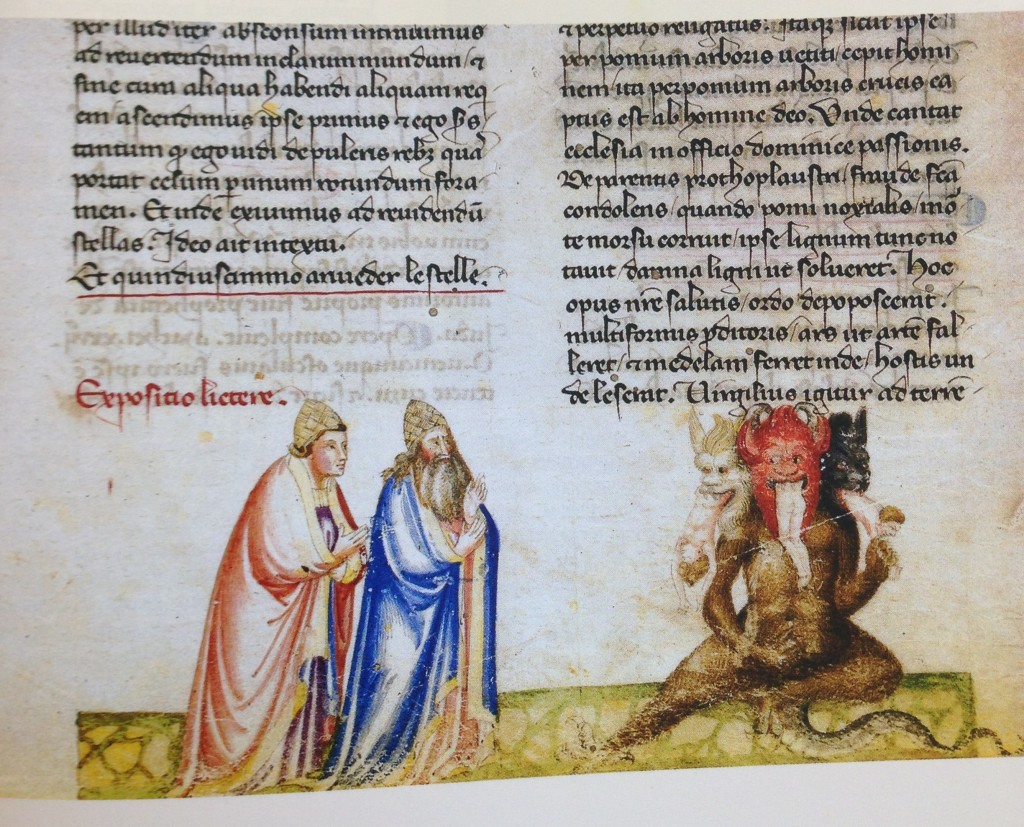 per illud iter absconsum intrauimus
ad reuertendum in clarum mundum / ⁊
sine cura aliqua habendi aliquam req
em ascendimus ipse primus ⁊ ego
tantum ꝙ ego uidi de pulcris rebꝫ
portat celum p unum rotundum fora
men. Et inde exiuimus ad reuidendū
stellas. Ideo ait in textu.
Et quindi uscimmo a riueder le stelle.
Expositio lictere.
⁊ perpetuo religatus. Itaqꝫ sicut ipse
per pomum arboris uetiti / cepit homi
nem ita per pomum arboris crucis ca
ptus est ab homine deo. Unde cantat
ecclesia in officio dominice passionis.
De parentis prothoplaustri / fraude fcā
condolens / quando pomi noxialis / mō
te morsu corruit / ipse lignum tunc no
tauit / damna ligni ut solueret. Hoc
opus nrē salutis / ordo depoposcerat.
multiformis ꝓditoris / ars ut artē fal-
leret / ⁊ medelam ferret inde / hostis un
de leserat. Uirgilius igitur ad terrē-